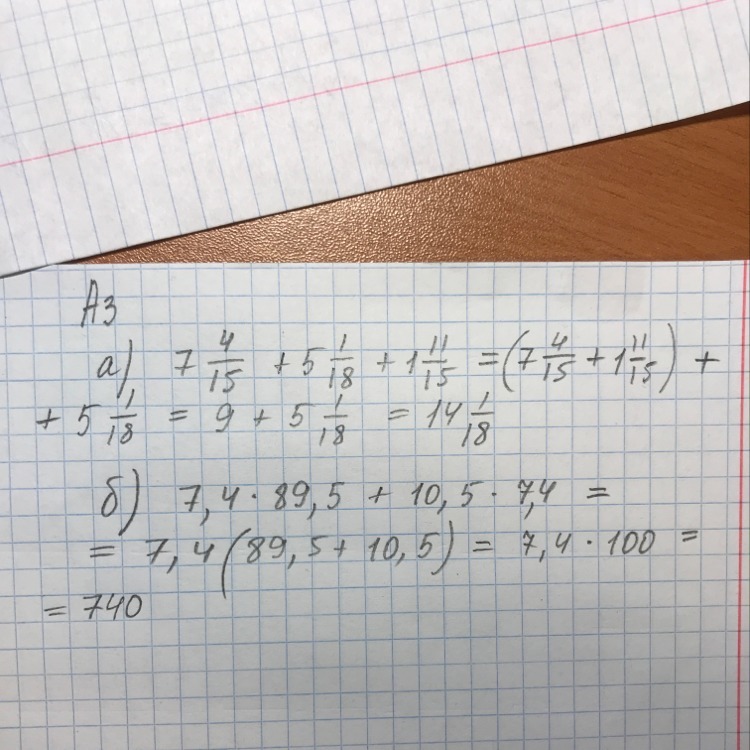 А3
а) 7 4/15 + 5 1/18 + 1 11/15 = (7 4/15 + 1 11/15) +
+ 5 1/18 = 9 + 5 1/18 = 14 1/18
б) 7,4 · 89,5 + 10,5 · 7,4 =
= 7,4 (89,5 + 10,5) = 7,4 · 100 =
= 740